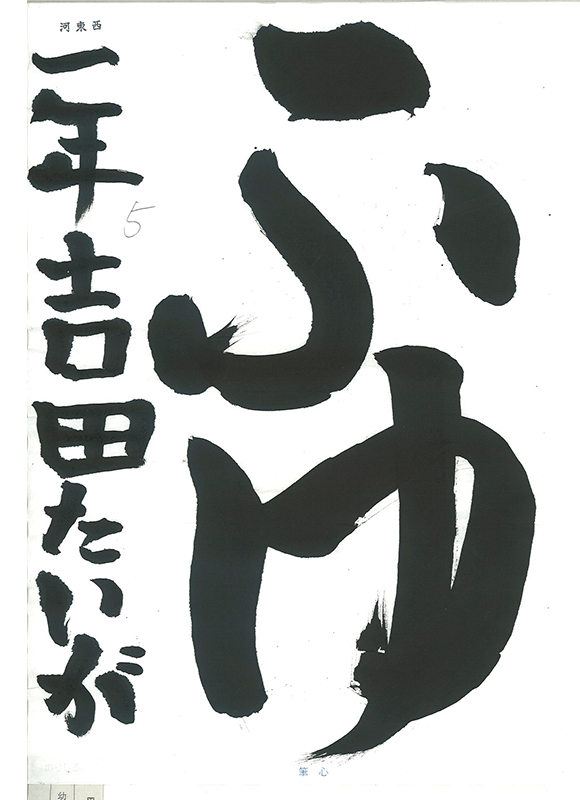 ふゆ
河東西
一年吉田たいが
5
筆心
幼